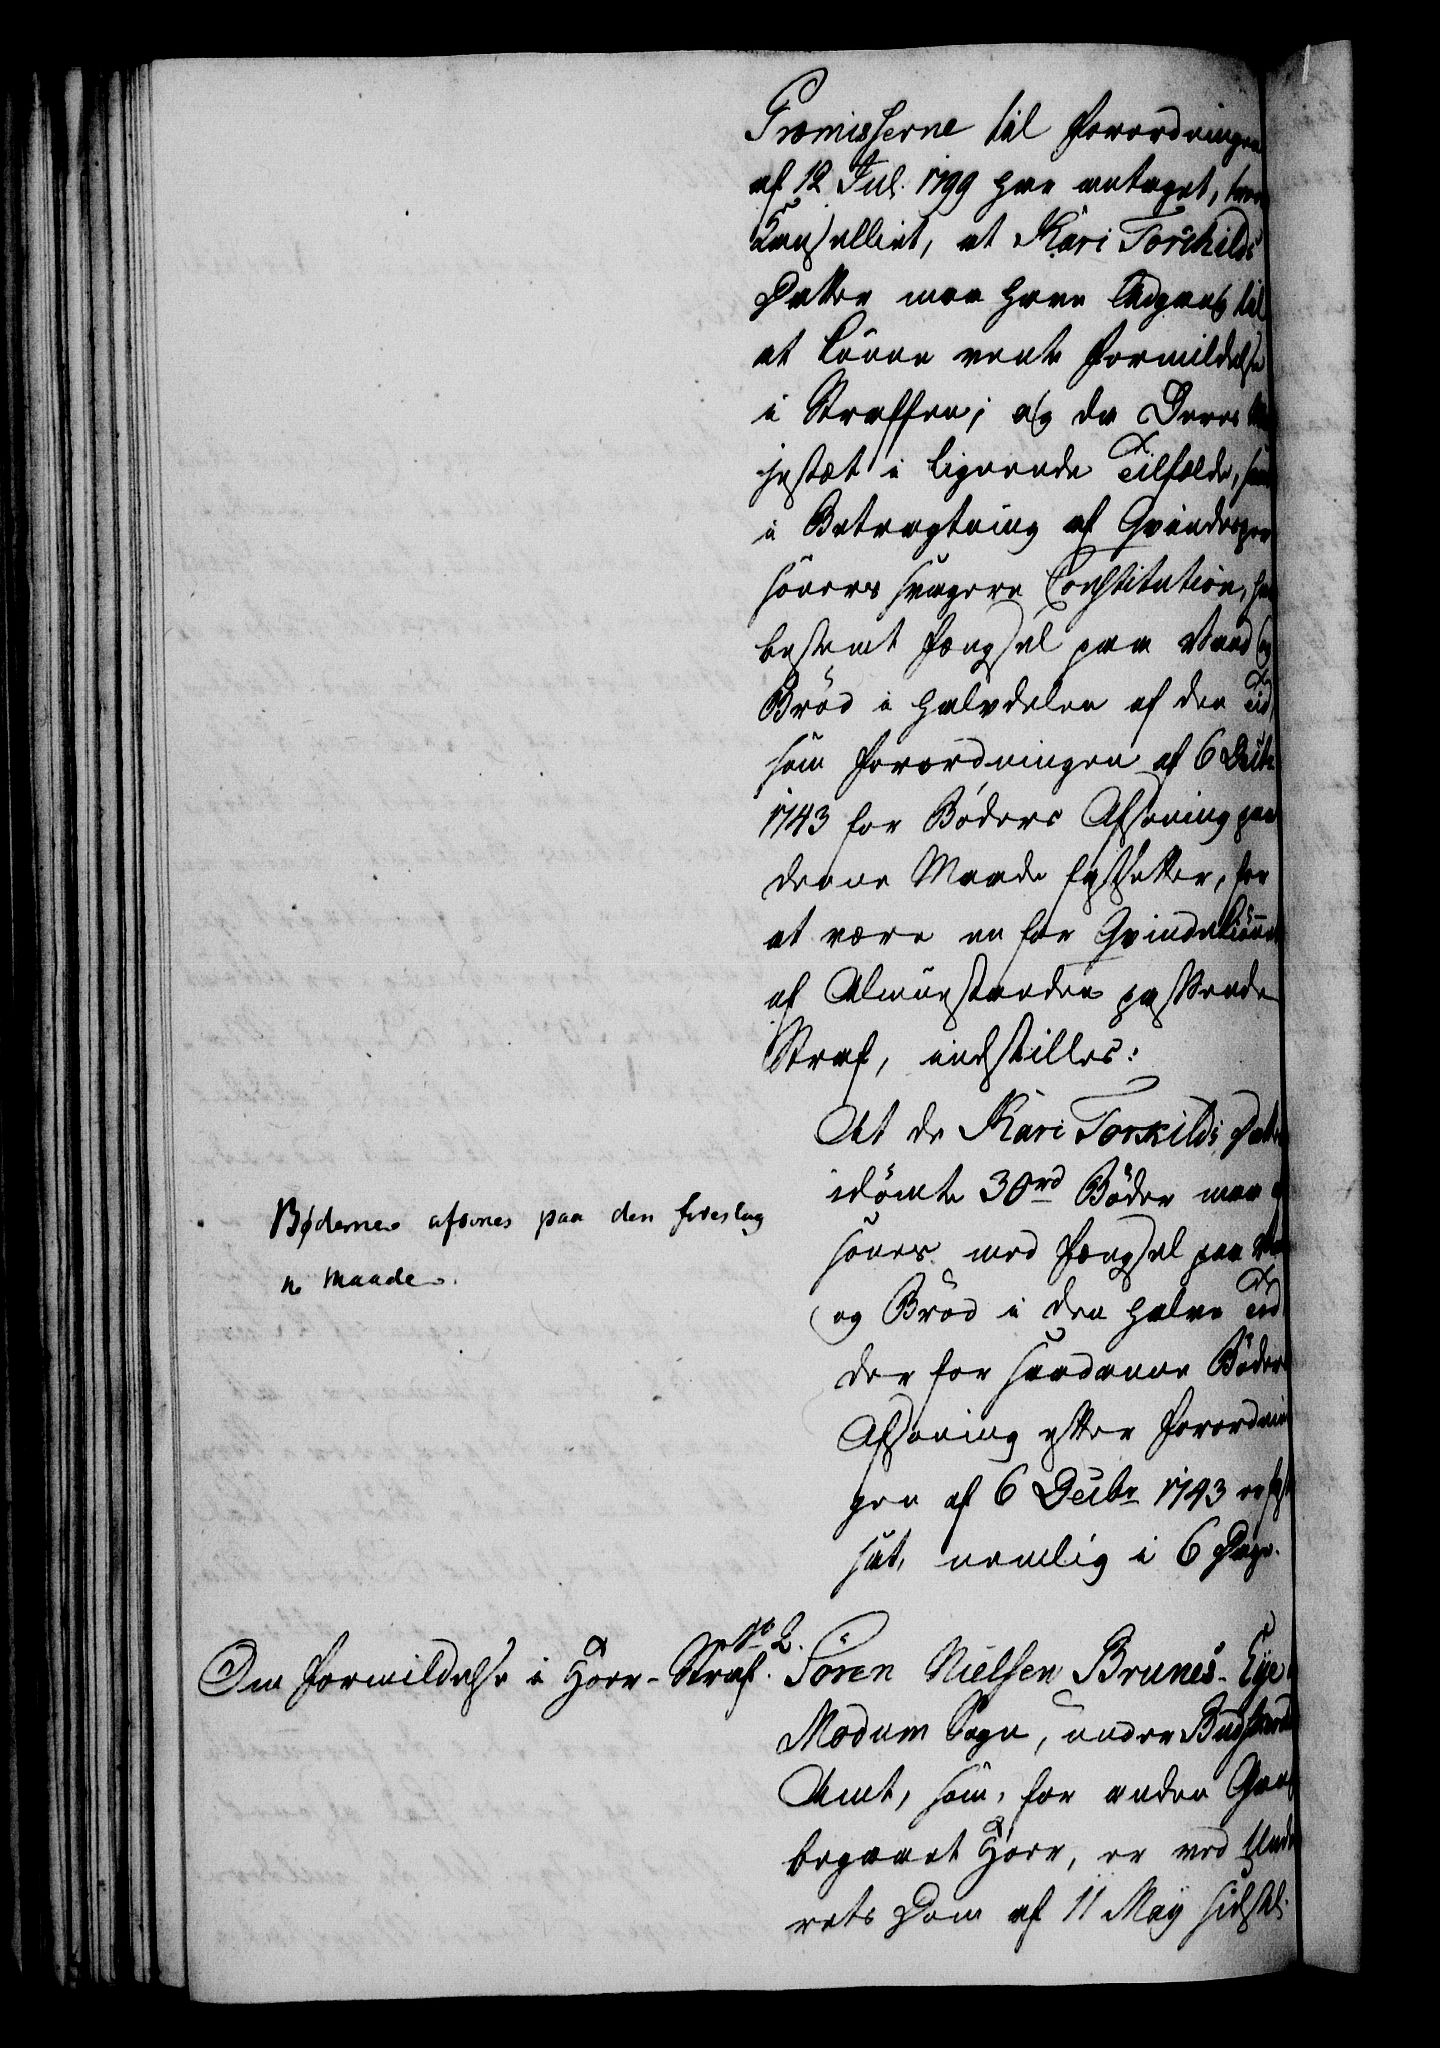 Præmisserne til Forordningen
af 12 Jul. 1799 har antaget, troer
Cancelliet, at Kari Torskilds
Datter maa have Adgang til
at kunne vente Formildelse
i Straffen; og da Deres Ma
jestæt i lignende Tilfælde, som
i Betragtning af Qvindesper
soners svagere Constitution, har
bestemt Fængsel paa Vand og
Brød i Halvdelen af den Tid,
som Forordningen af 6 Decbr
1743 for Bøders Afsoning paa
denne Maade fastsetter, for
at være en for Qvindekiønnet
af Almuestanden passende
Straf, indstilles:
At de Kari Torskilds Datter
idømte 30 rd Bøder maa af
sones med Fængsel paa Vand
og Brød i den halve Tid
der for saadanne Bøders
Afsoning efter Forordnin
gen af 6 Decbr 1743 er fast
sat, nemlig i 6 Dage.
Bøderne afsones paa den foreslag
ne Maade.
No 2.
Om Formildelse i Hoer-Straf.
Sören Nielsen Brunes-Eye
Modum Sogn, under Budskeruds
Amt, som, for anden Gang
begaaet Hoer, er ved Unde
rets Dom af 11 May sidstl.